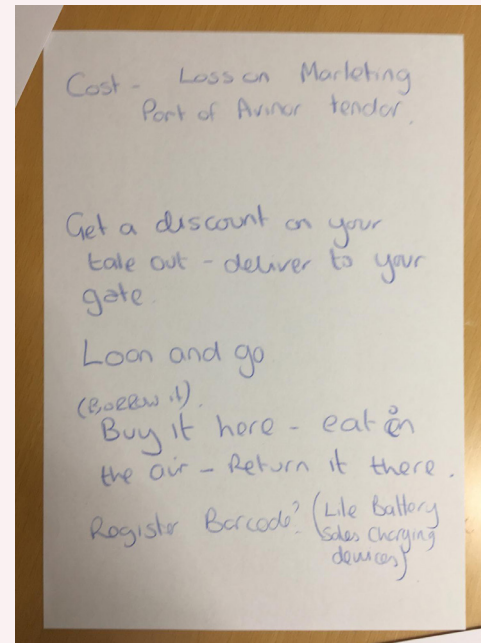 Cost - Loss on Marketing
Part of Avinor tendor.
Get a discount on your
take out - deliver to your
gate.
Loan and go
(Borrow it).
Buy it here - eat in
the air - Return it there.
Register Barcode? (Like Battery
Sales Charging
devices)